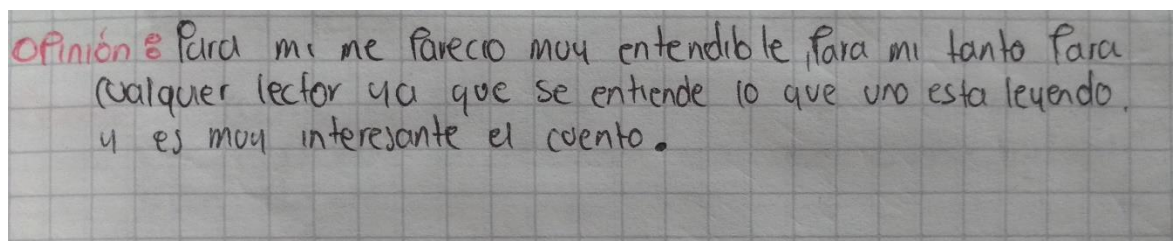 Opinión: Para mi me Parecio muy entendible, Para mi tanto Para
cualquer lector ya que se entiende lo que uno esta leyendo.
y es muy interesante el cuento.